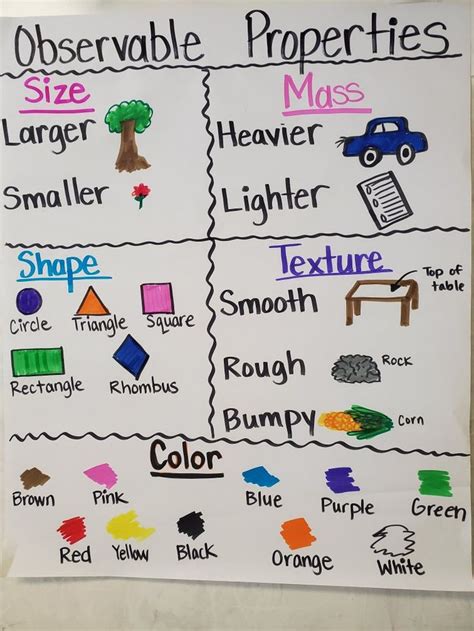 Observable Properties
Size
Larger
Smaller
Mass
Heavier
Lighter
Shape
Circle
Triangle
Square
Rectangle
Rhombus
Texture
Smooth
Top of
table
Rough
Rock
Bumpy
Corn
Color
Brown
Pink
Blue
Purple
Green
Red
Yellow
Black
Orange
White